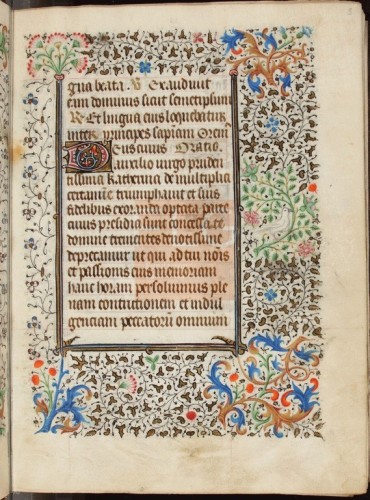 gua beata. V Exaudivit
eum dominus sicut semetipsum
R Et lingua eius loquebatur
inter principes sapiam Orem
Deus cuius Oratio.
auxilio virgo pruden
tissima katherina de multipli
certamine triumphavit et suis
fidelibus exoranti optata parte
cuius presidia sunt concessa te
domine trementes devotissime
deprecamur ut qui ad tui nois
et passionis eius memoriam
hanc horam persolvimus ple
nam contritionem et indul
gentiam peccatorum omnium